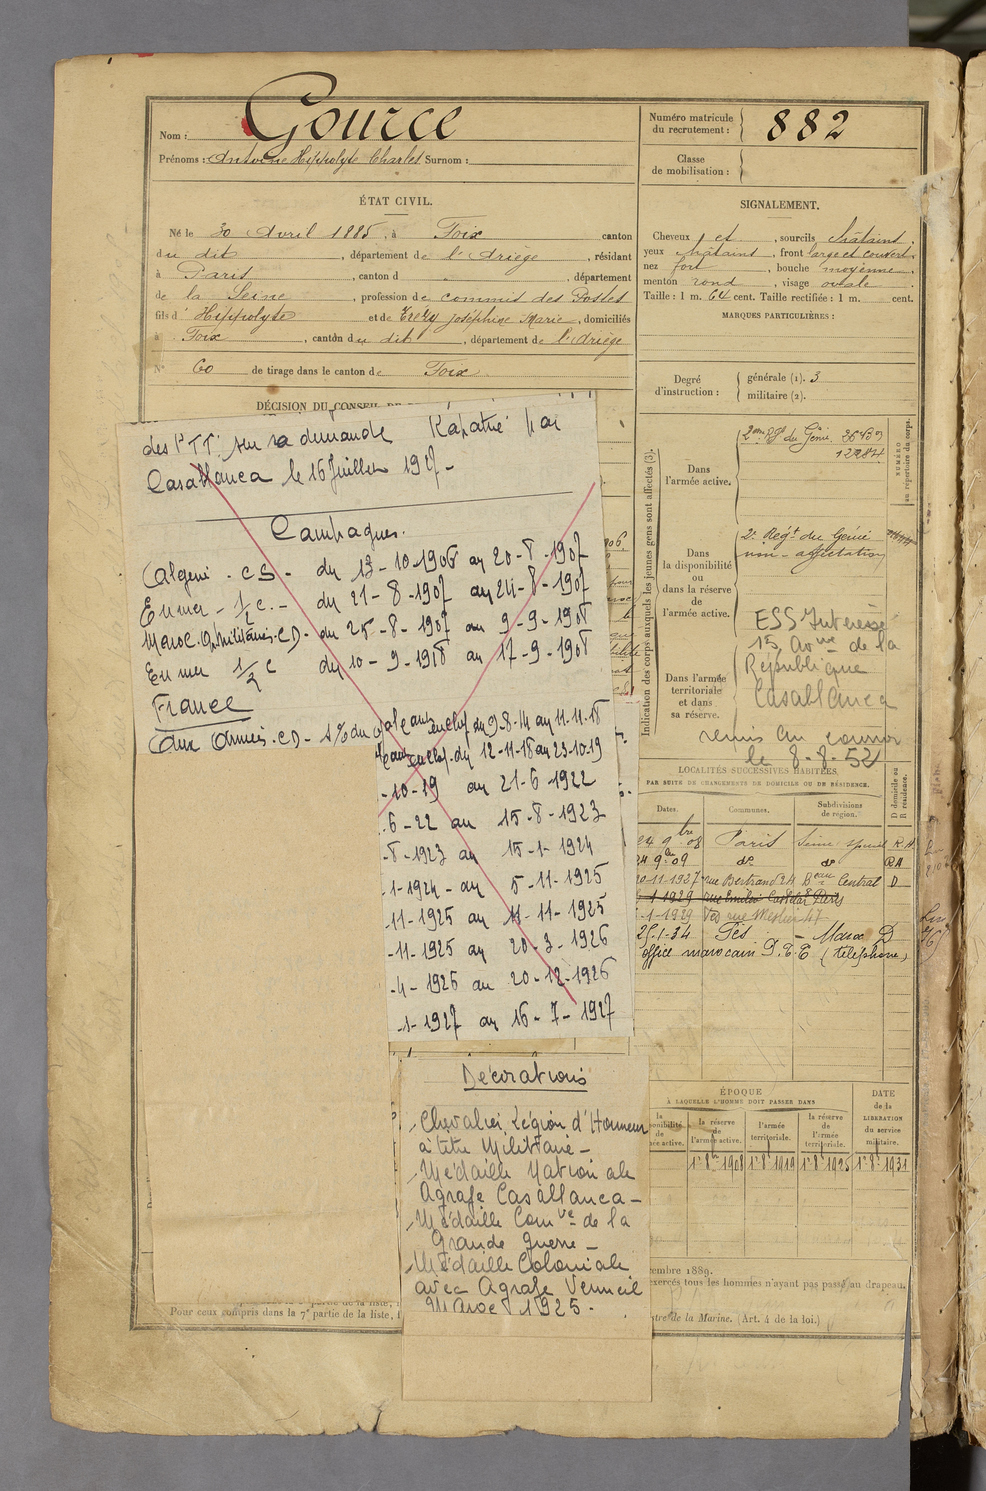 Nom : Gource
Prénoms : Antoine Hippolyte Charles Surnom :
ÉTAT CIVIL.
Né le 30 Avril 1885, à Foix canton
du dit, département de l'Ariège, résidant
à Paris, canton d , département
de la Seine, profession de commis des Postes
fils d' Hippolyte et de Joséphine Marie, domiciliés
à Foix, canton du dit, département de l'Ariège
N° 60 de tirage dans le canton de Foix.
DÉCISION DU CONSEIL DE
Numéro matricule du recrutement : 882
Classe de mobilisation :
SIGNALEMENT.
Cheveux et , sourcils châtains,
yeux châtains, front large et couvert,
nez fort, bouche moyenne,
menton rond, visage ovale.
Taille : 1 m. 64 cent. Taille rectifiée : 1 m. cent.
MARQUES PARTICULIÈRES :
Degré d'instruction :
générale (1). 3
militaire (2).
Indication des corps auxquels les jeunes gens sont affectés (3).
NUMÉRO au répertoire du corps.
Dans l'armée active.
du Génie.
Dans la disponibilité ou dans la réserve de l'armée active.
2e Régt du Génie
non-affectation
Dans l'armée territoriale et dans sa réserve.
ESS Intéressé
15, Avnue de la
République
Casablanca
remis au courrier
le 8-8-52
LOCALITÉS SUCCESSIVES HABITÉES
PAR SUITE DE CHANGEMENTS DE DOMICILE OU DE RÉSIDENCE.
Dates. Communes. Subdivisions de région. D domicile ou R résidence.
24 9bre 08 Paris Seine spécial R A
24 9e 09 do do RA
10-11-1927 rue Bertrand 24 Beau Central D
1-1929 rue Emilio Castelar Paris
-1-1929
25-1-34 Fès - Maroc D
office marocain P.T.T (téléphone)
ÉPOQUE
À LAQUELLE L'HOMME DOIT PASSER DANS
la disponibilité de l'armée active.
la réserve de l'armée active.
l'armée territoriale.
la réserve de l'armée territoriale.
DATE de la LIBÉRATION du service militaire.
1er 8bre 1908 1er 8bre 1914 1er 8bre 1925 1er 8bre 1931
cembre 1889.
exercés tous les hommes n'ayant pas passé au drapeau.
Pour ceux compris dans la 7e partie de la liste,
stre de la Marine. (Art. 4 de la loi.)
des PTT sur sa demande Rapatrié par
Casablanca le 16 Juillet 1927-
Campagnes.
Algérie - CS - du 13-10-1906 au 20-8-1907
En mer - 1/2 c. - du 21-8-1907 au 24-8-1907
Maroc. Op. militaires-CD- du 25-8-1907 au 9-9-1908
En mer 1/2 c du 10-9-1908 au 17-9-1908
France
Aux Armées-CD- du 9-8-14 au 11-11-18
du 12-11-18 au 23-10-19
-10-19 au 21-6-1922
6-22 au 15-8-1923
-8-1923 au 15-1-1924
-1-1924- au 5-11-1925
-11-1925 au 11-11-1925
-11-1925 au 20-3-1926
-4-1926 au 20-12-1926
-1-1927 au 16-7-1927
Décorations
- Chevalier Légion d'Honneur
à titre Militaire-
- Médaille Nationale
Agrafe Casablanca-
- Médaille Comve de la
Grande Guerre-
- Médaille Coloniale
avec Agrafe Vermeil
Maroc 1925-